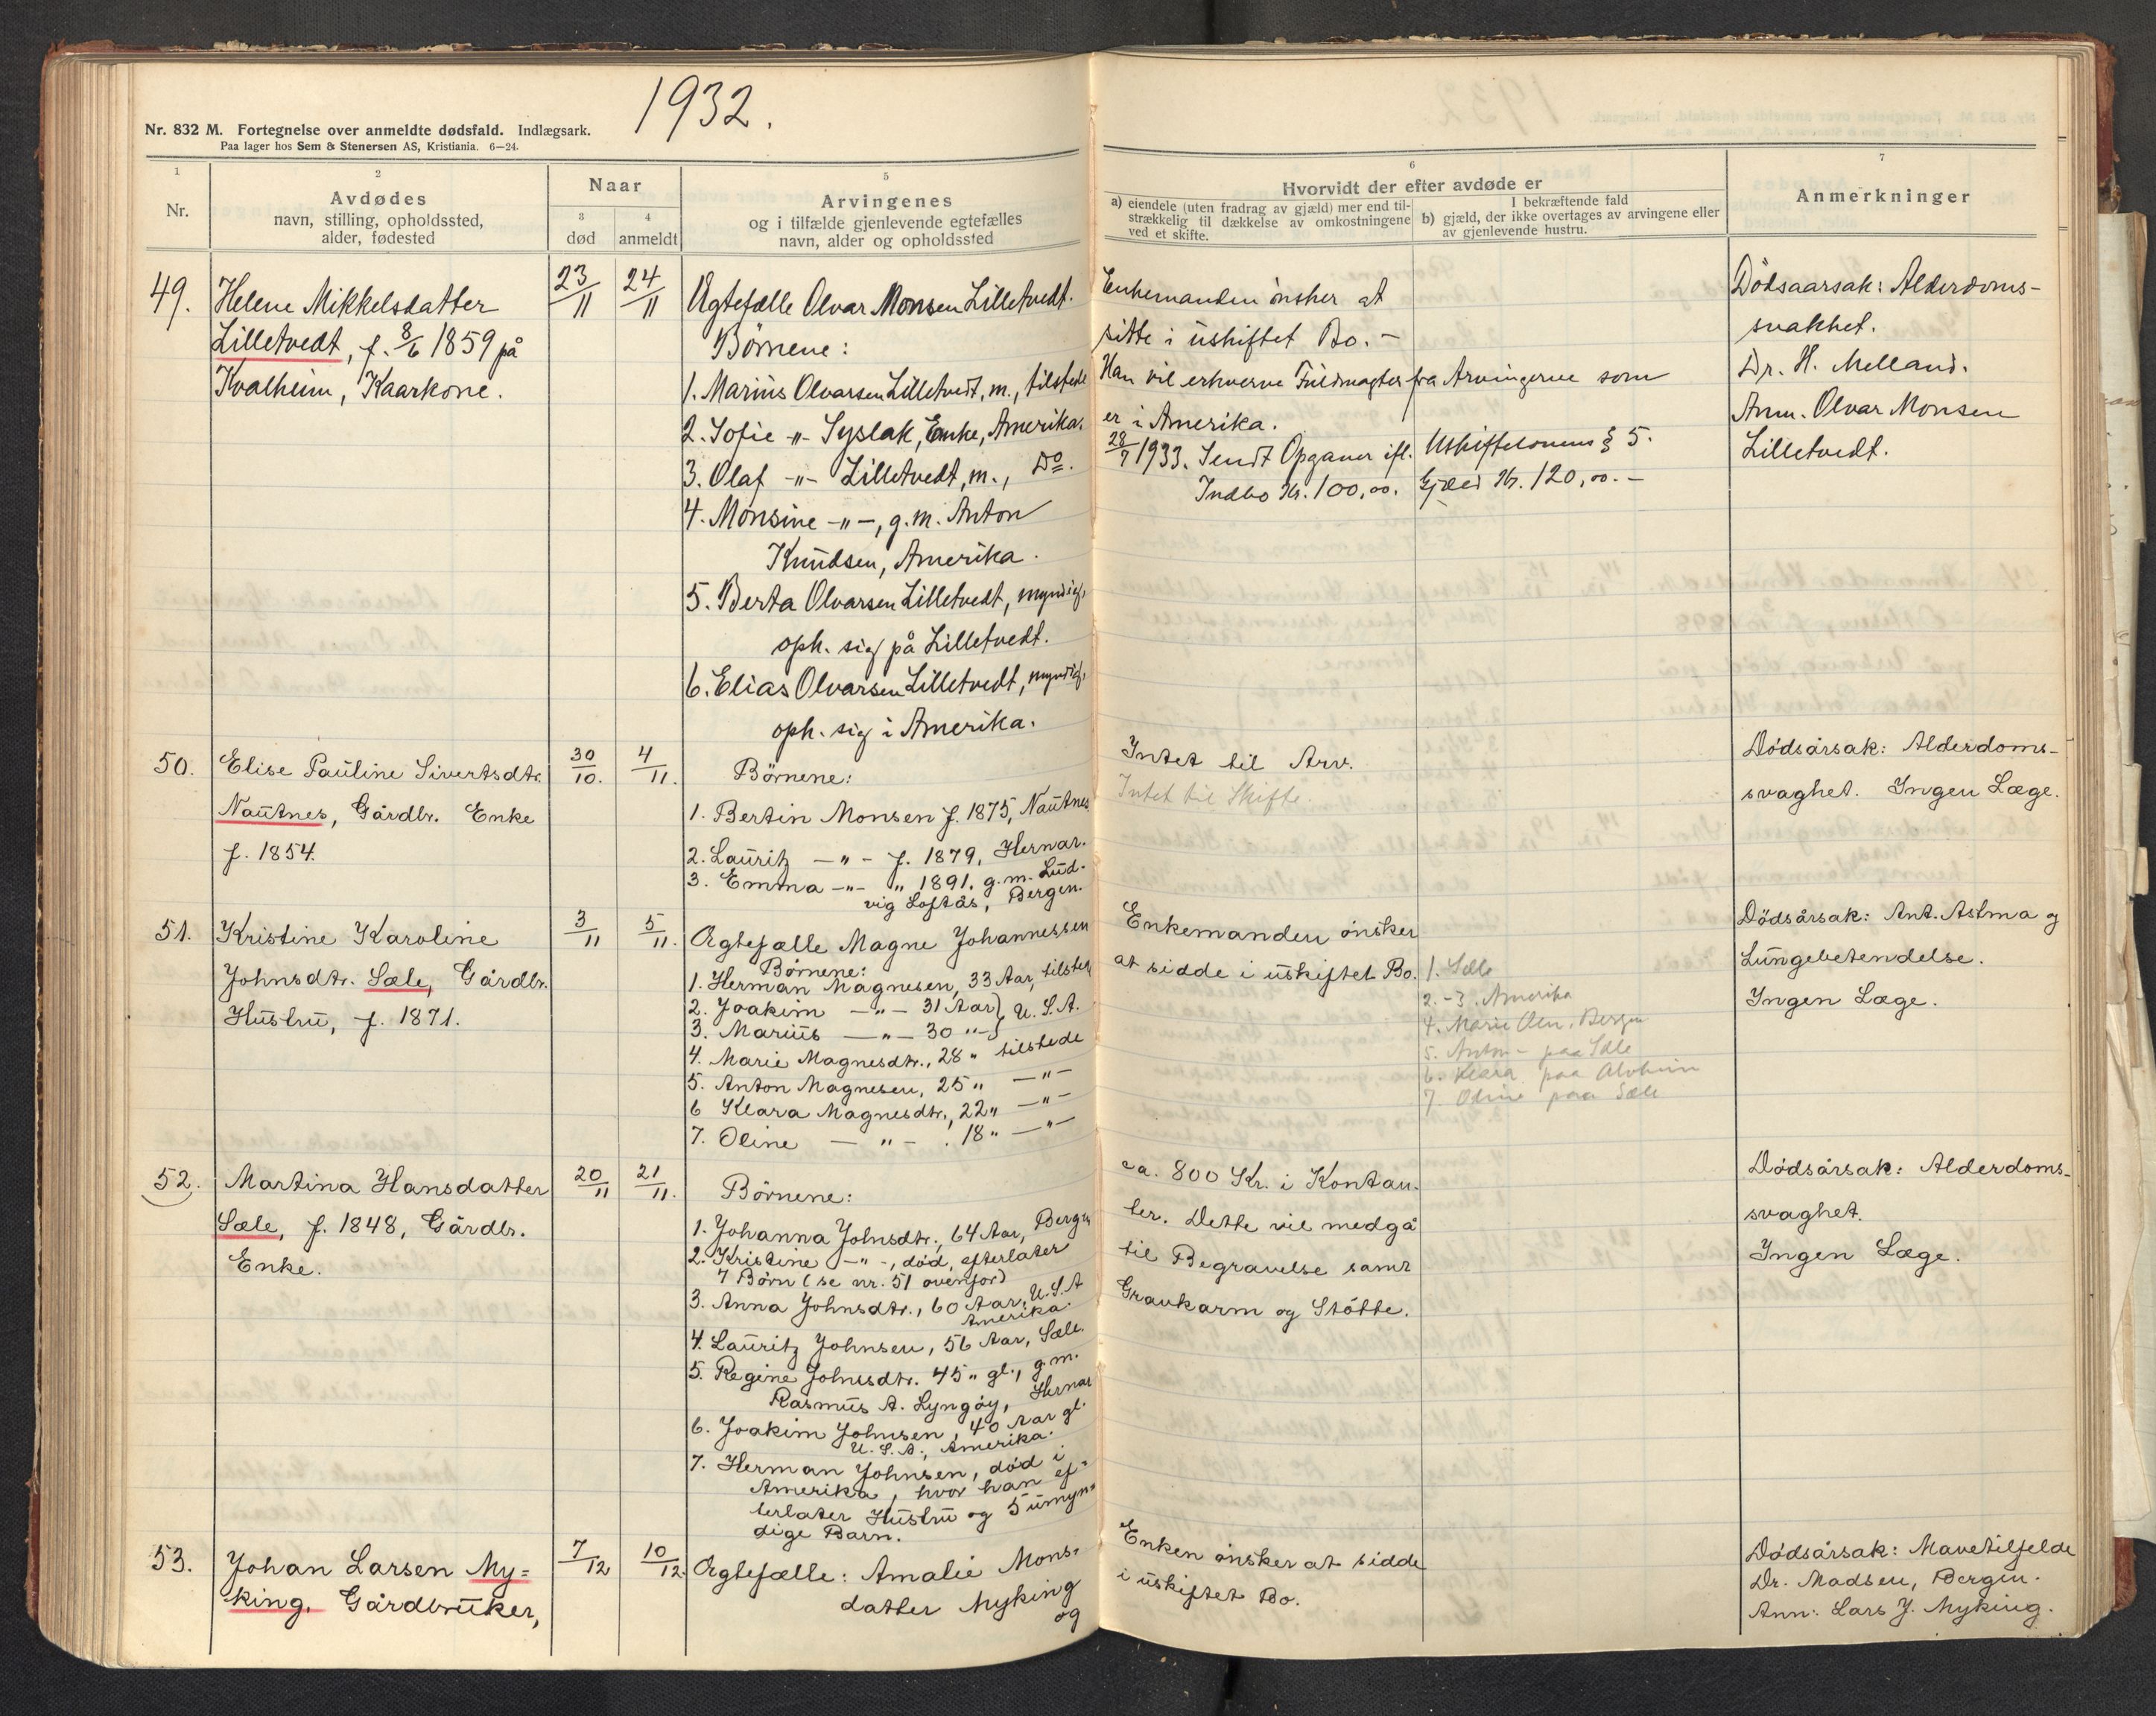 1932.
Nr. 832 M. Fortegnelse over anmeldte dødsfald. Indlægsark.
Paa lager hos Sem & Stenersen AS, Kristiania. 6—24.
1
Nr.
2
Avdødes
navn, stilling, opholdssted,
alder, fødested
Naar
3
død
4
anmeldt
5
Arvingenes
og i tilfælde gjenlevende egtefælles
navn, alder og opholdssted
6
Hvorvidt der efter avdøde er
a) eiendele (uten fradrag av gjæld) mer end til-
strækkelig til dækkelse av omkostningene
ved et skifte.
I bekræftende fald
b) gjæld, der ikke overtages av arvingene eller
av gjenlevende hustru.
7
Anmerkninger
49.
Helene Mikkelsdatter
Lilletvedt, f. 8/6 1859 på
Kvalheim, Kaarkone.
23/11
24/11
Ægtefælle Olvar Monsen Lilletvedt.
Börnene:
1. Marius Olvarsen Lilletvedt, m., tilstede
2. Sofie -"- Syslak, Enke, Amerika.
3. Olaf -"- Lilletvedt, m., Do.
4. Monsine -"-, g.m. Anton
Knudsen, Amerika.
5. Berta Olvarsen Lilletvedt, myndig,
oph. sig på Lilletvedt.
6. Elias Olvarsen Lilletvedt, myndig,
oph. sig i Amerika.
Enkemanden önsker at
sitte i uskiftet Bo. -
Han vil erhverve Fuldmagter fra Arvingerne som
er i Amerika.
28/7 1933. Sendt Opgaver ifl. Uskiftelovens § 5.
Indbo Kr. 100,00. Gjæld Kr. 120,00. -
Dödsaarsak: Alderdoms-
svakhet.
Dr. H. Melland.
Anm. Olvar Monsen
Lilletvedt.
50.
Elise Pauline Sivertsdtr.
Nautnes, Gårdbr. Enke
f. 1854.
30/10.
4/11.
Börnene:
1. Bertin Monsen f. 1875, Nautnes
2. Lauritz -"- f. 1879, Hernar.
3. Emma -"- " 1891. g.m. Lud-
vig Loftås, Bergen.
Intet til Arv.
Intet til Skifte.
Dödsårsak: Alderdoms-
svaghet. Ingen Læge.
51.
Kristine Karoline
Johnsdtr. Sæle, Gårdbr.
Hustru, f. 1871.
3/11
5/11.
Ægtefælle Magne Johannessen
Börnene:
1. Herman Magnesen, 33 Aar, tilstede
2. Joakim -"- 31 Aar } U.S.A.
3. Marius -"- 30 "- }
4. Marie Magnesdtr., 28 " tilstede
5. Anton Magnesen, 25 " -"-
6 Klara Magnesdtr., 22 " -"-
7. Oline -"- . 18 " -"-
Enkemanden önsker
at sidde i uskiftet Bo.
1. Sæle
2.-3. Amerika
4. Marie Bergen
5. Anton - paa Sæle
6. Klara paa Alvheim
7. Oline paa Sæle
Dödsårsak: Ant. Astma og
Lungebetendelse.
Ingen Læge.
52.
Martina Hansdatter
Sæle, f. 1848, Gårdbr.
Enke.
20/11
21/11.
Börnene:
1. Johanna Johnsdtr., 64 Aar, Bergen
2. Kristine -"-, död, efterlater
7 Börn (se nr. 51 ovenfor)
3. Anna Johnsdtr., 60 Aar, U.S.A
Amerika.
4. Lauritz Johnsen, 56 Aar, Sæle.
5. Regine Johnsdtr. 45 " gl., g.m.
Rasmus A. Lyngöy, Hernar
6. Joakim Johnsen, 40 Aar gl.
U.S.A., Amerika.
7. Herman Johnsen, död i
Amerika, hvor han ef-
terlater Hustru og 5 umyn-
dige Barn.
ca. 800 Kr. i Kontan-
ter. Dette vil medgå
til Begravelse samt
Gravkarm og Stötte.
Dödsårsak: Alderdoms-
svaghet.
Ingen Læge.
53.
Johan Larsen My=
king, Gårdbruker,
7/12
10/12.
Ægtefælle: Amalie Mons-
datter Myking
og
Enken önsker at sidde
i uskiftet Bo.
Dödsårsak: Mavetilfelde
Dr. Madsen, Bergen.
Ann: Lars J. Myking.